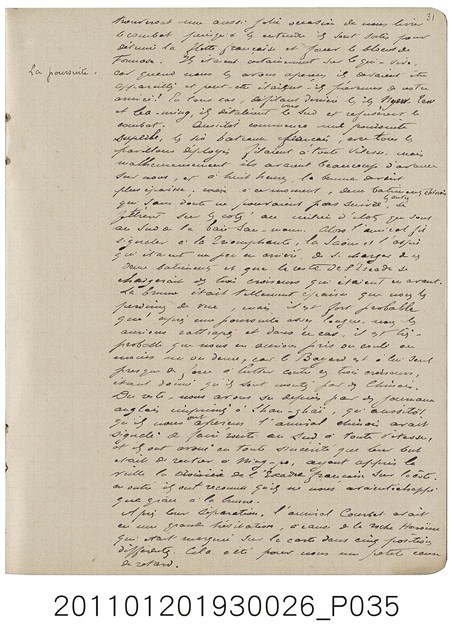 31
trouverait une aussi jolie occasion de nous livrer
le combat puisqu'à les entendre ils sont sortis pour
détruire la flotte française et forcer le blocus de
Formose. Ils étaient certainement sur le qui-vive,
La poursuite.
car quand nous les avons aperçus ils devaient être
appareillés et peut-être étaient-ils prévenus de notre
arrivée! En tous cas, défilant derrière les îles
et ils détalèrent vers le Sud et refusèrent le
combat. Aussitôt commence une poursuite
superbe, les six bateaux français, avec tous les
pavillons déployés, filaient à toute vitesse, mais
malheureusement ils avaient beaucoup d'avance
sur nous, et à huit heures, la brume devint
plus épaisse, mais à ce moment, deux bâtiments chinois
qui sans doute ne pouvaient pas suivre les autres, se
jetèrent sur la côte, au milieu d'îlots qui sont
au Sud de la baie San-moun. Alors l'amiral fit
signaler à la Triomphante, la Saône et l'Aspic
qui étaient un peu en arrière de se charger des
deux bâtiments et que le reste de l'Escadre se
chargerait des trois croiseurs qui étaient en avant.
La brume était tellement épaisse que nous les
perdîmes de vue, mais il est fort probable
qu'après une poursuite assez longue, nous les
aurions rattrapés et dans ce cas, il est très
probable que nous en aurions pris ou coulé au
moins un ou deux, car le Bayard est à lui seul
presque de force à lutter contre les trois croiseurs,
étant donné qu'ils sont montés par des Chinois.
Du reste, nous avons su depuis par des journaux
anglais imprimés à Shang-haï, qu'aussitôt
qu'ils nous ont aperçus l'amiral chinois avait
signalé de faire route au Sud à toute vitesse,
et ils ont avoué en toute sincérité que leur but
était de rentrer à Ning-po, ayant appris la
veille la croisière de l'Escadre française sur la côte.
en outre ils ont reconnu qu'ils ne nous avaient échappé
que grâce à la brume.
Après leur disparition, l'amiral Courbet était
en une grande hésitation, à cause de la roche
qui était marquée sur la carte dans cinq positions
différentes. Cela a été pour nous un petit
de retard.
201101201930026_P035